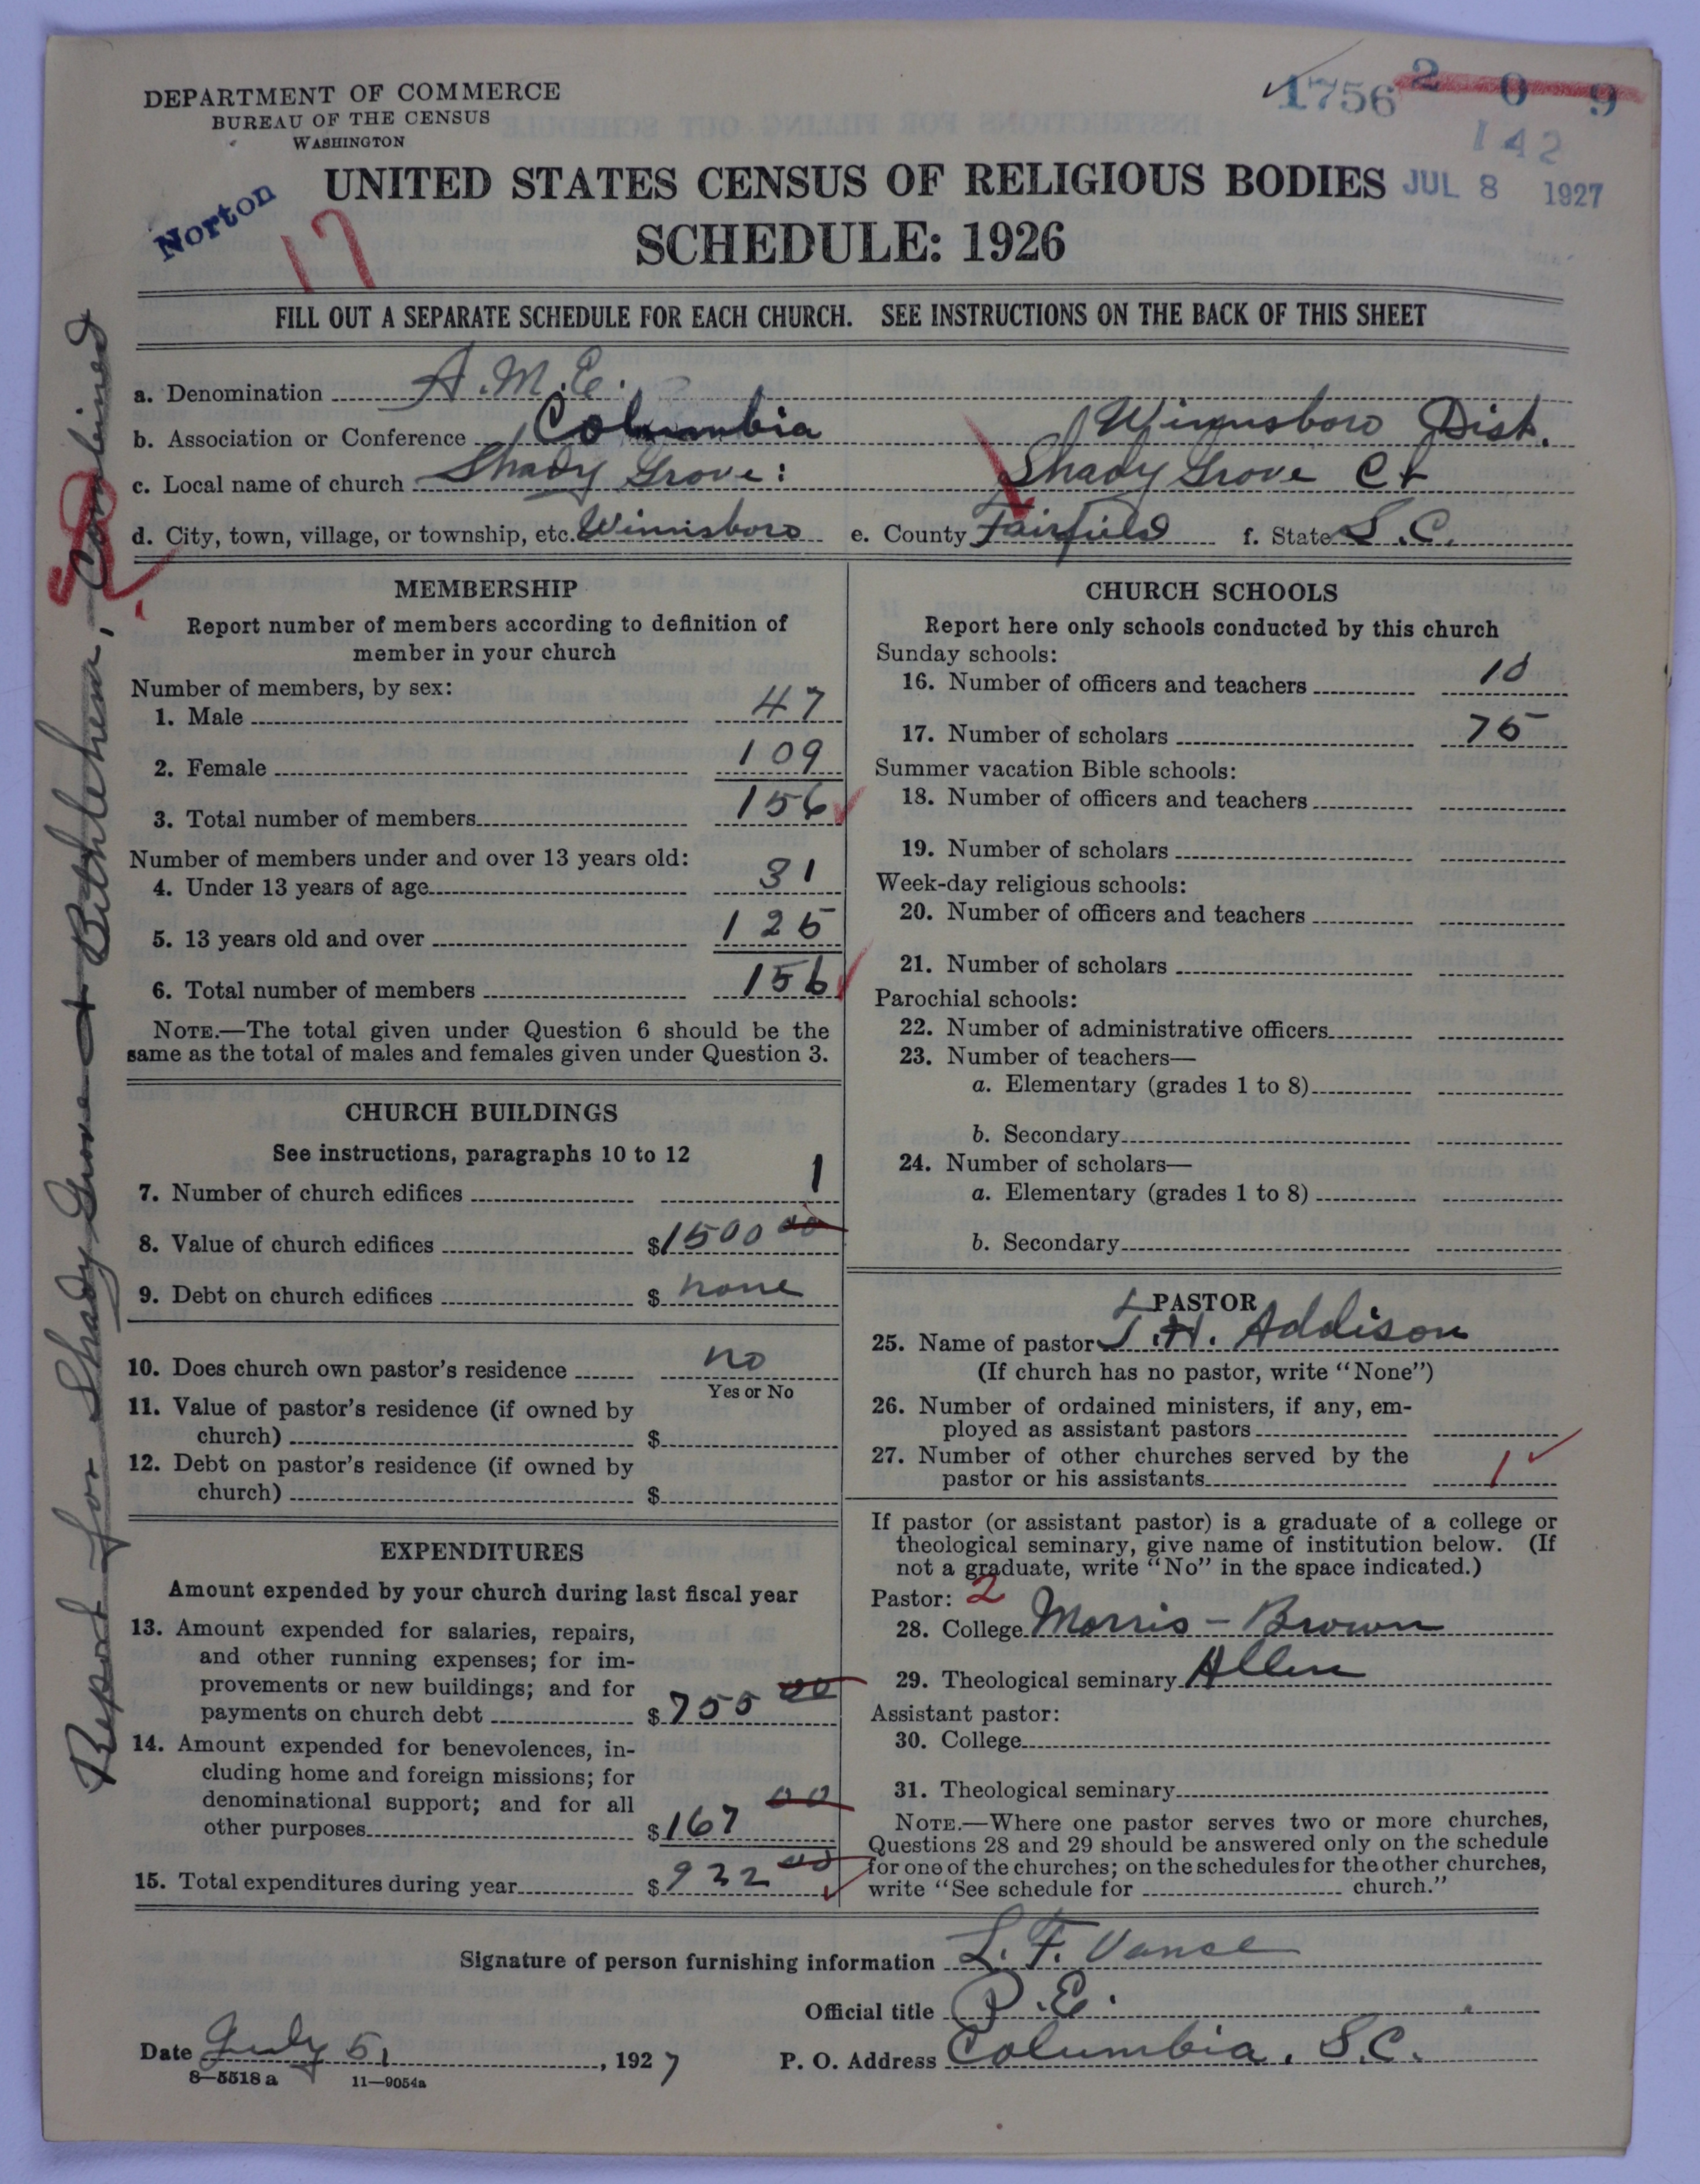 DEPARTMENT OF COMMERCE
BUREAU OF THE CENSUS
WASHINGTON
1756 2 0 9
142
Norton
17
UNITED STATES CENSUS OF RELIGIOUS BODIES JUL 8 1927
SCHEDULE: 1926
FILL OUT A SEPARATE SCHEDULE FOR EACH CHURCH. SEE INSTRUCTIONS ON THE BACK OF THIS SHEET
a. Denomination A.M.E.
b. Association or Conference Columbia Winnsboro Dist.
c. Local name of church Shady Grove: Shady Grove Ct
d. City, town, village, or township, etc. Winnsboro e. County Fairfield f. State S.C.
Report for Shady Grove + Bethlehem, Combined
2
MEMBERSHIP
Report number of members according to definition of
member in your church
Number of members, by sex:
1. Male 47
2. Female 109
3. Total number of members 156
Number of members under and over 13 years old:
4. Under 13 years of age 31
5. 13 years old and over 125
6. Total number of members 156
NOTE.—The total given under Question 6 should be the
same as the total of males and females given under Question 3.
CHURCH BUILDINGS
See instructions, paragraphs 10 to 12
7. Number of church edifices 1
8. Value of church edifices $1500 00
9. Debt on church edifices $ none
10. Does church own pastor's residence no
Yes or No
11. Value of pastor's residence (if owned by
church) $
12. Debt on pastor's residence (if owned by
church) $
EXPENDITURES
Amount expended by your church during last fiscal year
13. Amount expended for salaries, repairs,
and other running expenses; for im-
provements or new buildings; and for
payments on church debt $755 00
14. Amount expended for benevolences, in-
cluding home and foreign missions; for
denominational support; and for all
other purposes $167 00
15. Total expenditures during year $922 00
CHURCH SCHOOLS
Report here only schools conducted by this church
Sunday schools:
16. Number of officers and teachers 10
17. Number of scholars 75
Summer vacation Bible schools:
18. Number of officers and teachers
19. Number of scholars
Week-day religious schools:
20. Number of officers and teachers
21. Number of scholars
Parochial schools:
22. Number of administrative officers
23. Number of teachers—
a. Elementary (grades 1 to 8)
b. Secondary
24. Number of scholars—
a. Elementary (grades 1 to 8)
b. Secondary
PASTOR
25. Name of pastor T.H. Addison
(If church has no pastor, write "None")
26. Number of ordained ministers, if any, em-
ployed as assistant pastors
27. Number of other churches served by the
pastor or his assistants 1
If pastor (or assistant pastor) is a graduate of a college or
theological seminary, give name of institution below. (If
not a graduate, write "No" in the space indicated.)
Pastor: 2
28. College Morris-Brown
29. Theological seminary Allen
Assistant pastor:
30. College
31. Theological seminary
NOTE.—Where one pastor serves two or more churches,
Questions 28 and 29 should be answered only on the schedule
for one of the churches; on the schedules for the other churches,
write "See schedule for church."
Signature of person furnishing information L. F. Vance
Official title P.E.
Date July 5, 1927 P. O. Address Columbia, S.C.
8—5518a 11—9054a